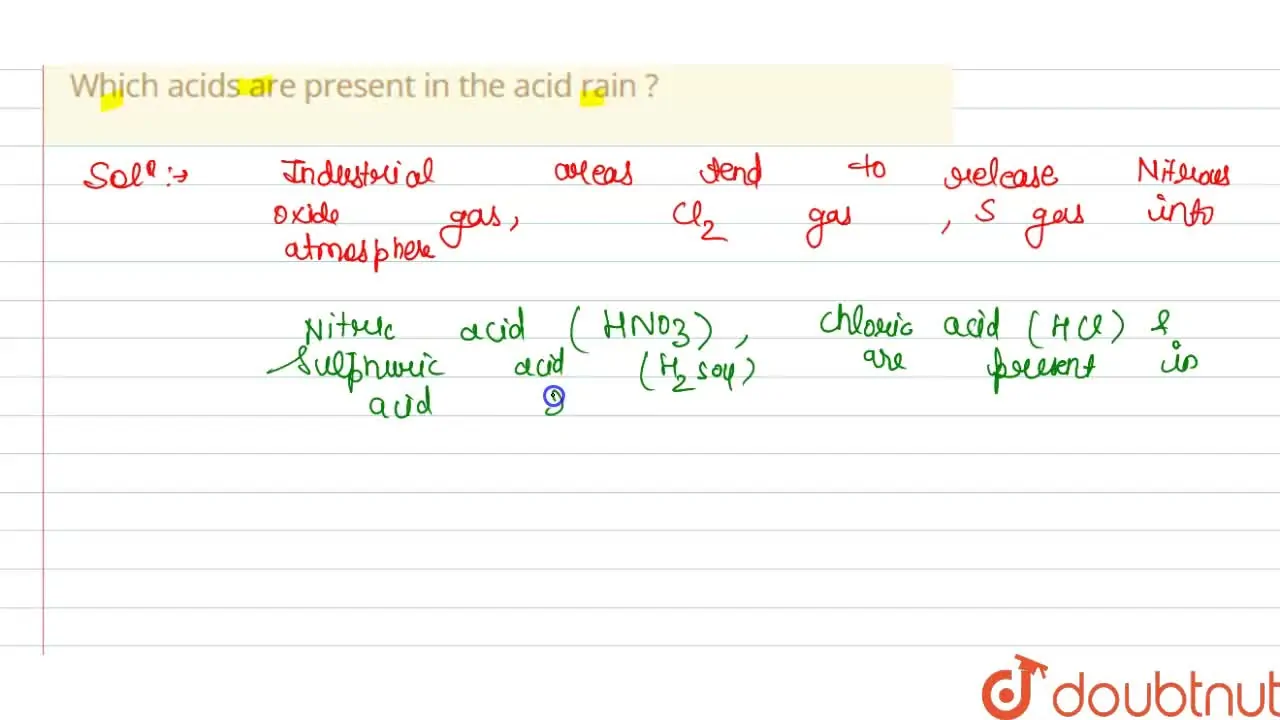 Which acids are present in the acid rain ?
Solⁿ :→ Industrial areas tend to release Nitrous
oxide gas, Cl2 gas , S gas into
atmosphere
Nitric acid (HNO3), chloric acid (HCl) &
Sulphuric acid (H2SO4) are present in
acid
doubtnut